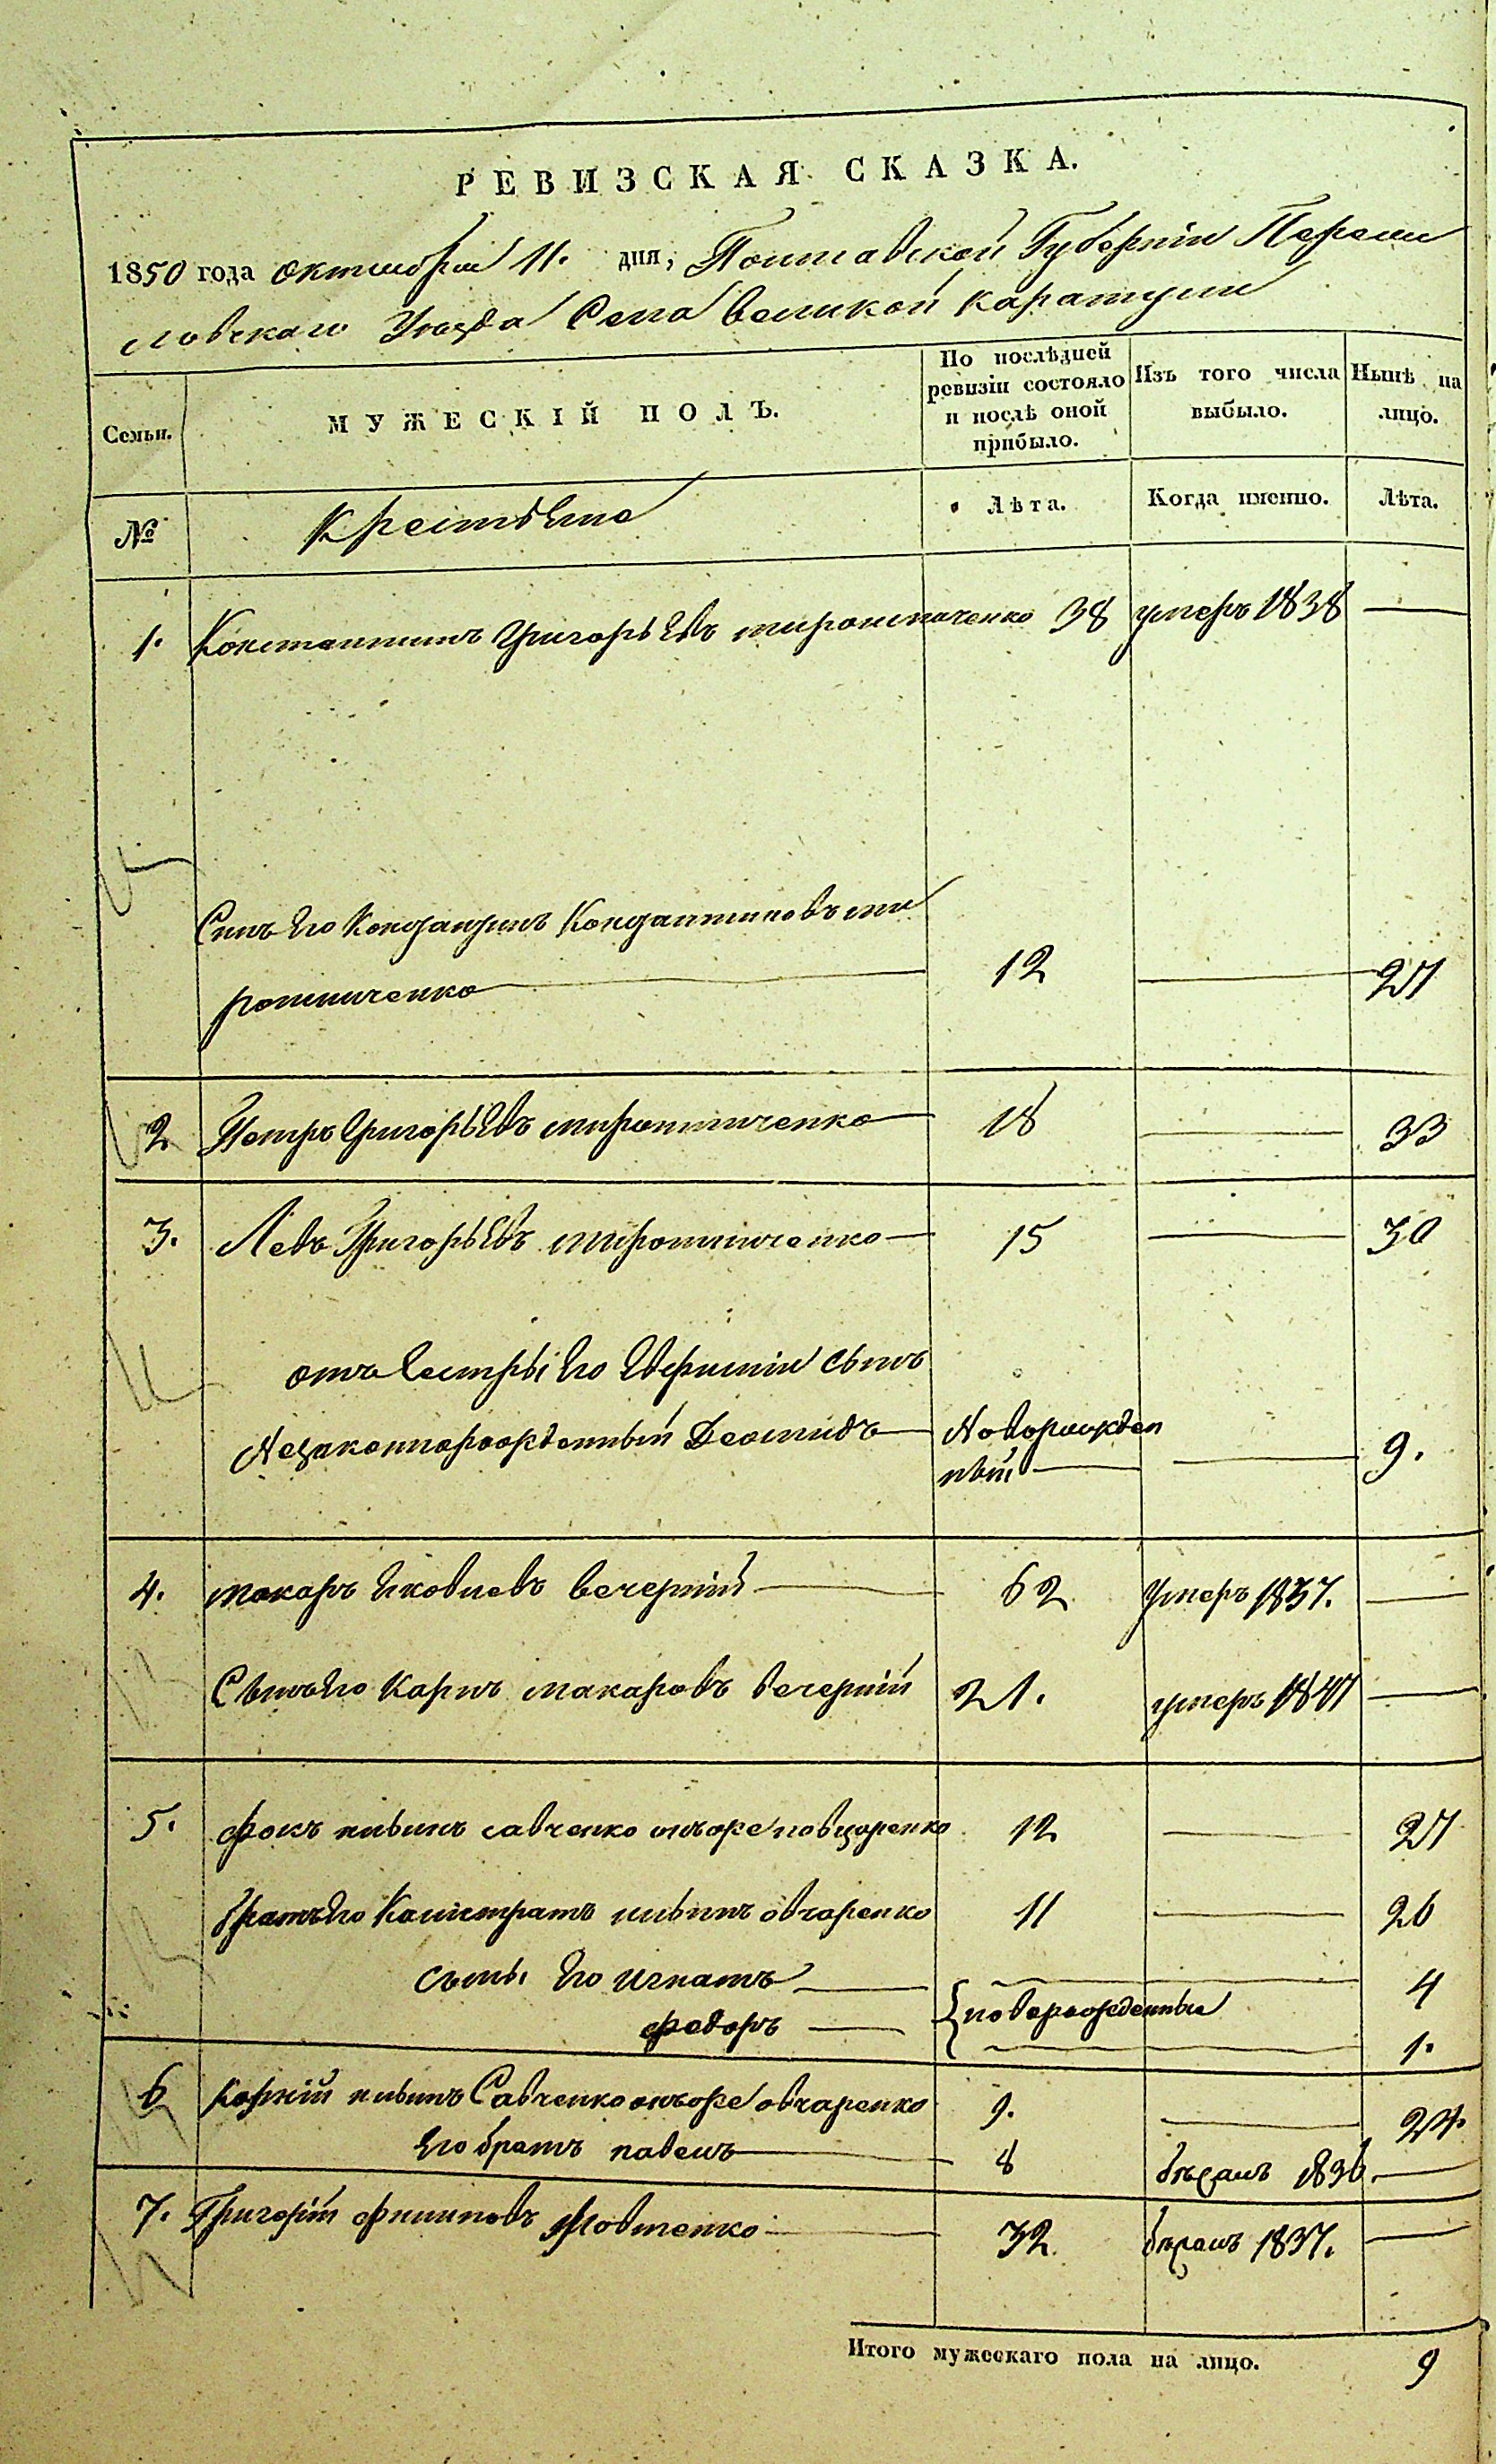 РЕВИЗСКАЯ СКАЗКА.
1850 года октября 11. дня, Полтавской Губернiи Переяс
ловскаго Уезда Села великой каратули
Семьи.
МУЖЕСКIЙ ПОЛЪ.
По послѣдней ревизiи состояло и послѣ оной прибыло.
Изъ того числа выбыло.
Нынѣ на лицо.
№
Крестьяне
Лѣта.
Когда именно.
Лѣта.
1. Константинъ Григорьевъ мирошниченко 38 умеръ 1838 —
Синъ Его Константиновъ ми
рошниченко — 12 — 27
2 Петръ Григорьевъ мирошниченко — 18 — 33
3. Левъ Григорьевъ мирошниченко — 15 — 30
отъ Сестры Его сынъ
Незаконнорожденный Деомидъ — Новорожден
ный — — 9.
4. макаръ Яковлевъ вечернiй — 62 Умеръ 1837. —
Сынъ Его Карпъ макаровъ вечернiй 21. умеръ 1847 —
5. фокъ савченко онъже 12 — 27
братъ Его Калистратъ овчаренко 11 — 26
сыны Его игнатъ — — 4
федоръ — новорожденные — 1.
6 Корнiй Савченко онъже овчаренко 9. — 24.
Его братъ павелъ — 8 бѣжалъ 1836. —
7. Григорiй филиповъ — 32 бѣжалъ 1837. —
Итого мужескаго пола на лицо. 9